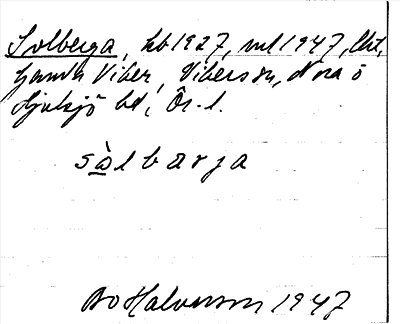 Solberga, kb 1927, ml 1947, lht,
Gamla Viker, Vikersön, Nora o
Hjulsjö bd, Ör. l.
sòlbarja
Bo Halvarson 1947